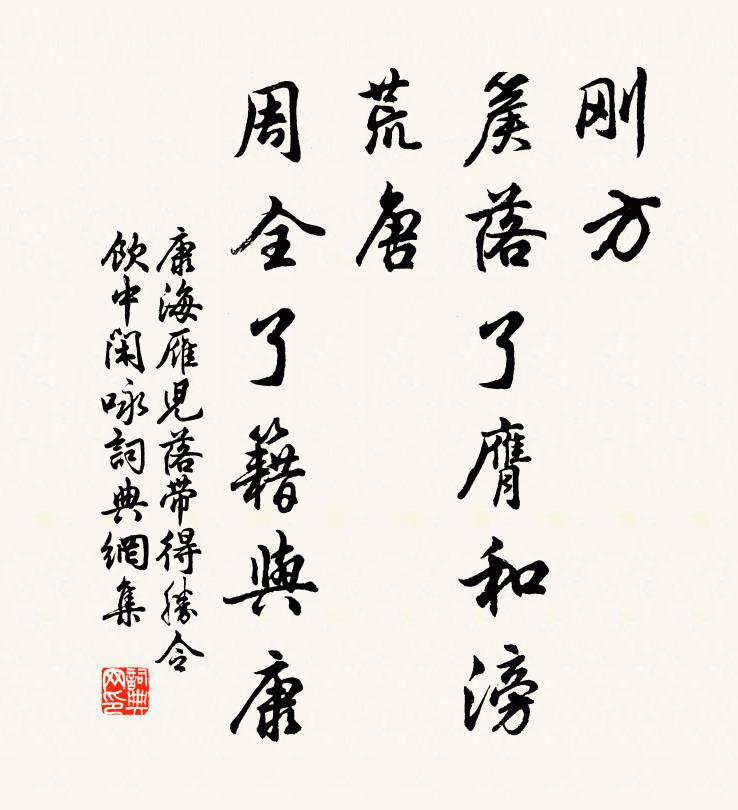 刚方
奚落了膺和滂
荒唐
周全了籍與康
康海雁児落帶得勝令
飲中閑咏詞典網集
詞典
网印